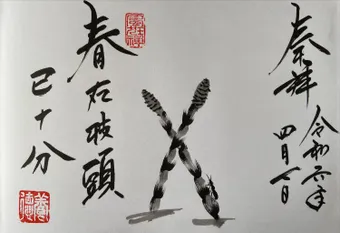 奉拝
令和六年
四月一日
春在枝頭
已十分